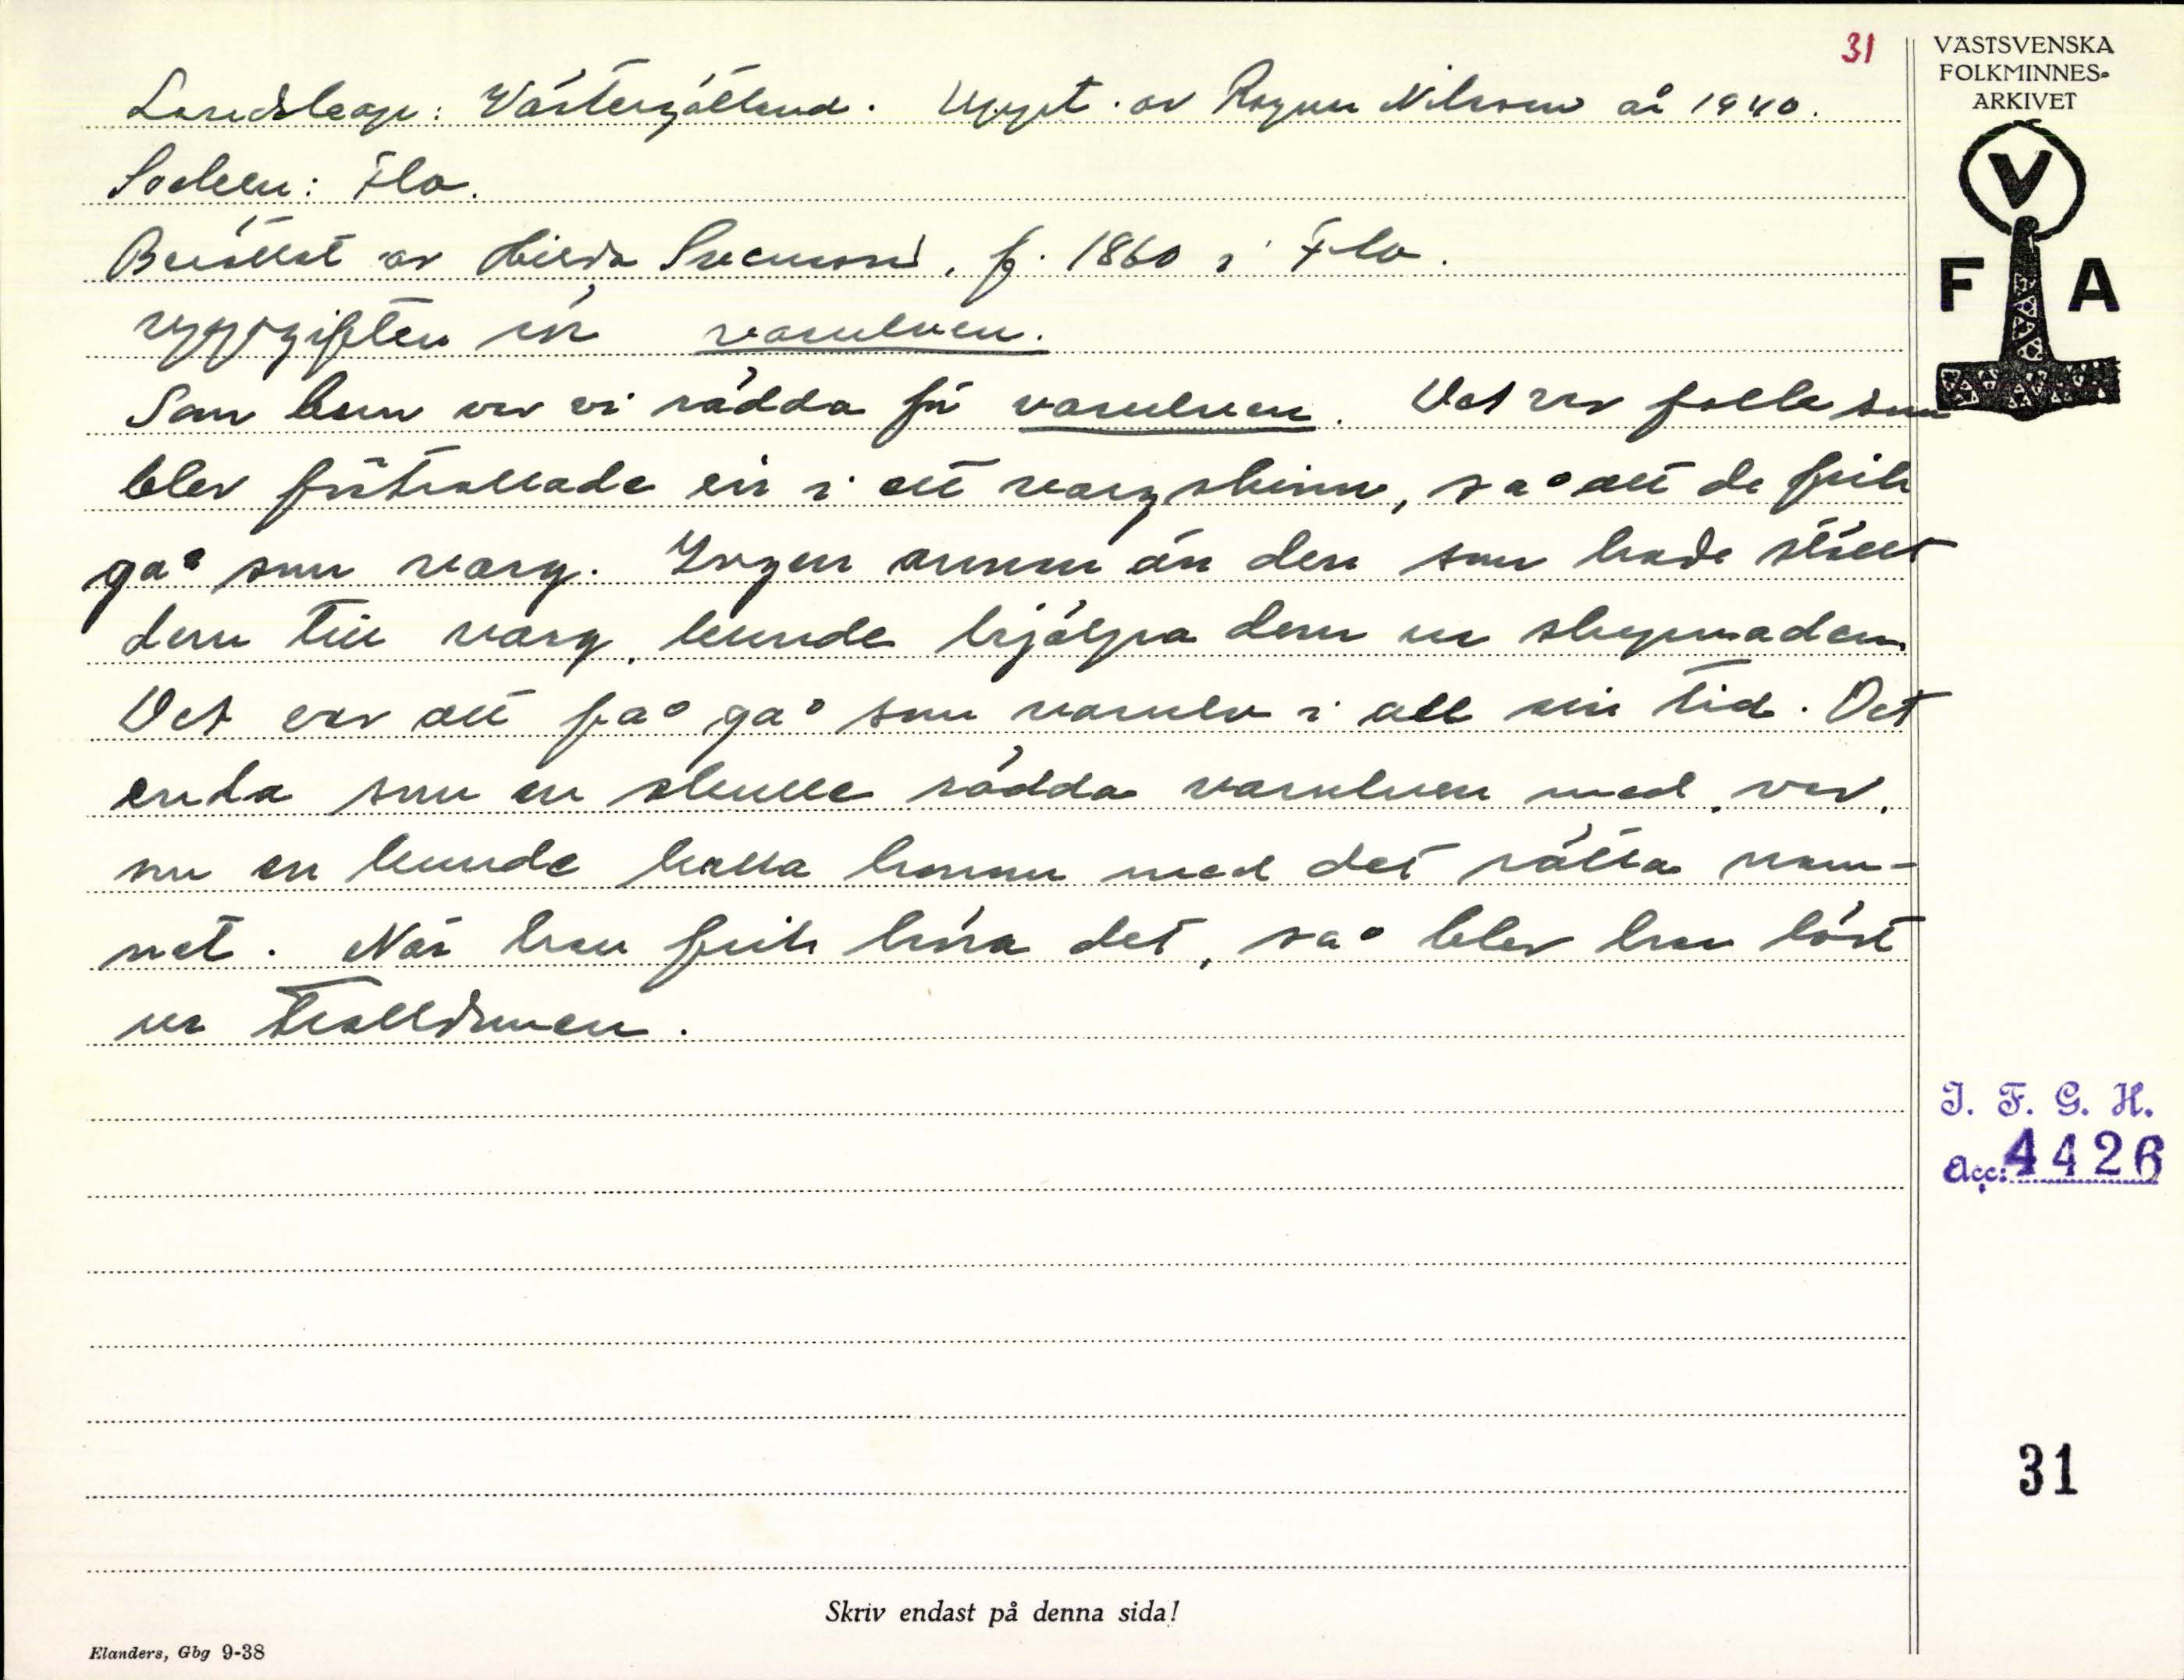 31
VÄSTSVENSKA
FOLKMINNES-
ARKIVET
V
F A
Landskap: Västergötland. Uppt. av Ragnar Nilsson år 1940.
Socken: Flo.
Berättat av Hilda Svensson, f. 1860 i Flo.
uppgiften är varulven.
Som barn var vi rädda för varulven. Det var folk som
blev förtrollade in i ett vargskinn, så att de fick
gå som varg. Ingen annan än den som hade ställt
dem till varg, kunde hjälpa dem ur skepnaden.
Det var att få gå som varulv i all sin tid. Det
enda som en skulle rädda varulven med, var,
om en kunde kalla honom med det rätta nam-
net. När han fick höra det, så blev han löst
ur trolldomen.
I. F. G. H.
Acc: 4426
31
Skriv endast på denna sida!
Elanders, Gbg 9-38